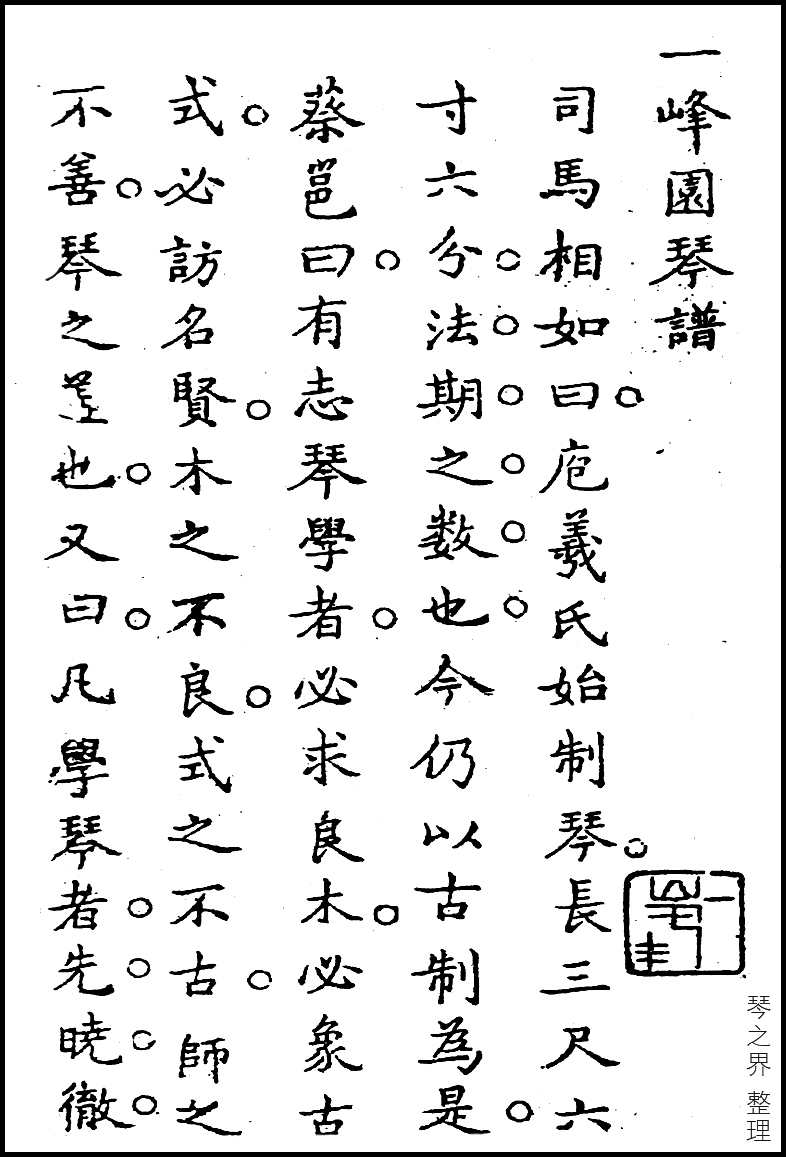 一峰園琴譜
司馬相如曰庖羲氏始制琴長三尺六
寸六分法期之数也今仍以古制為是
蔡邕曰有志琴學者必求良木必象古
式必訪名賢木之不良式之不古師之
不善琴之蠹也又曰凡學琴者先曉徹
一峰
琴之界 整理